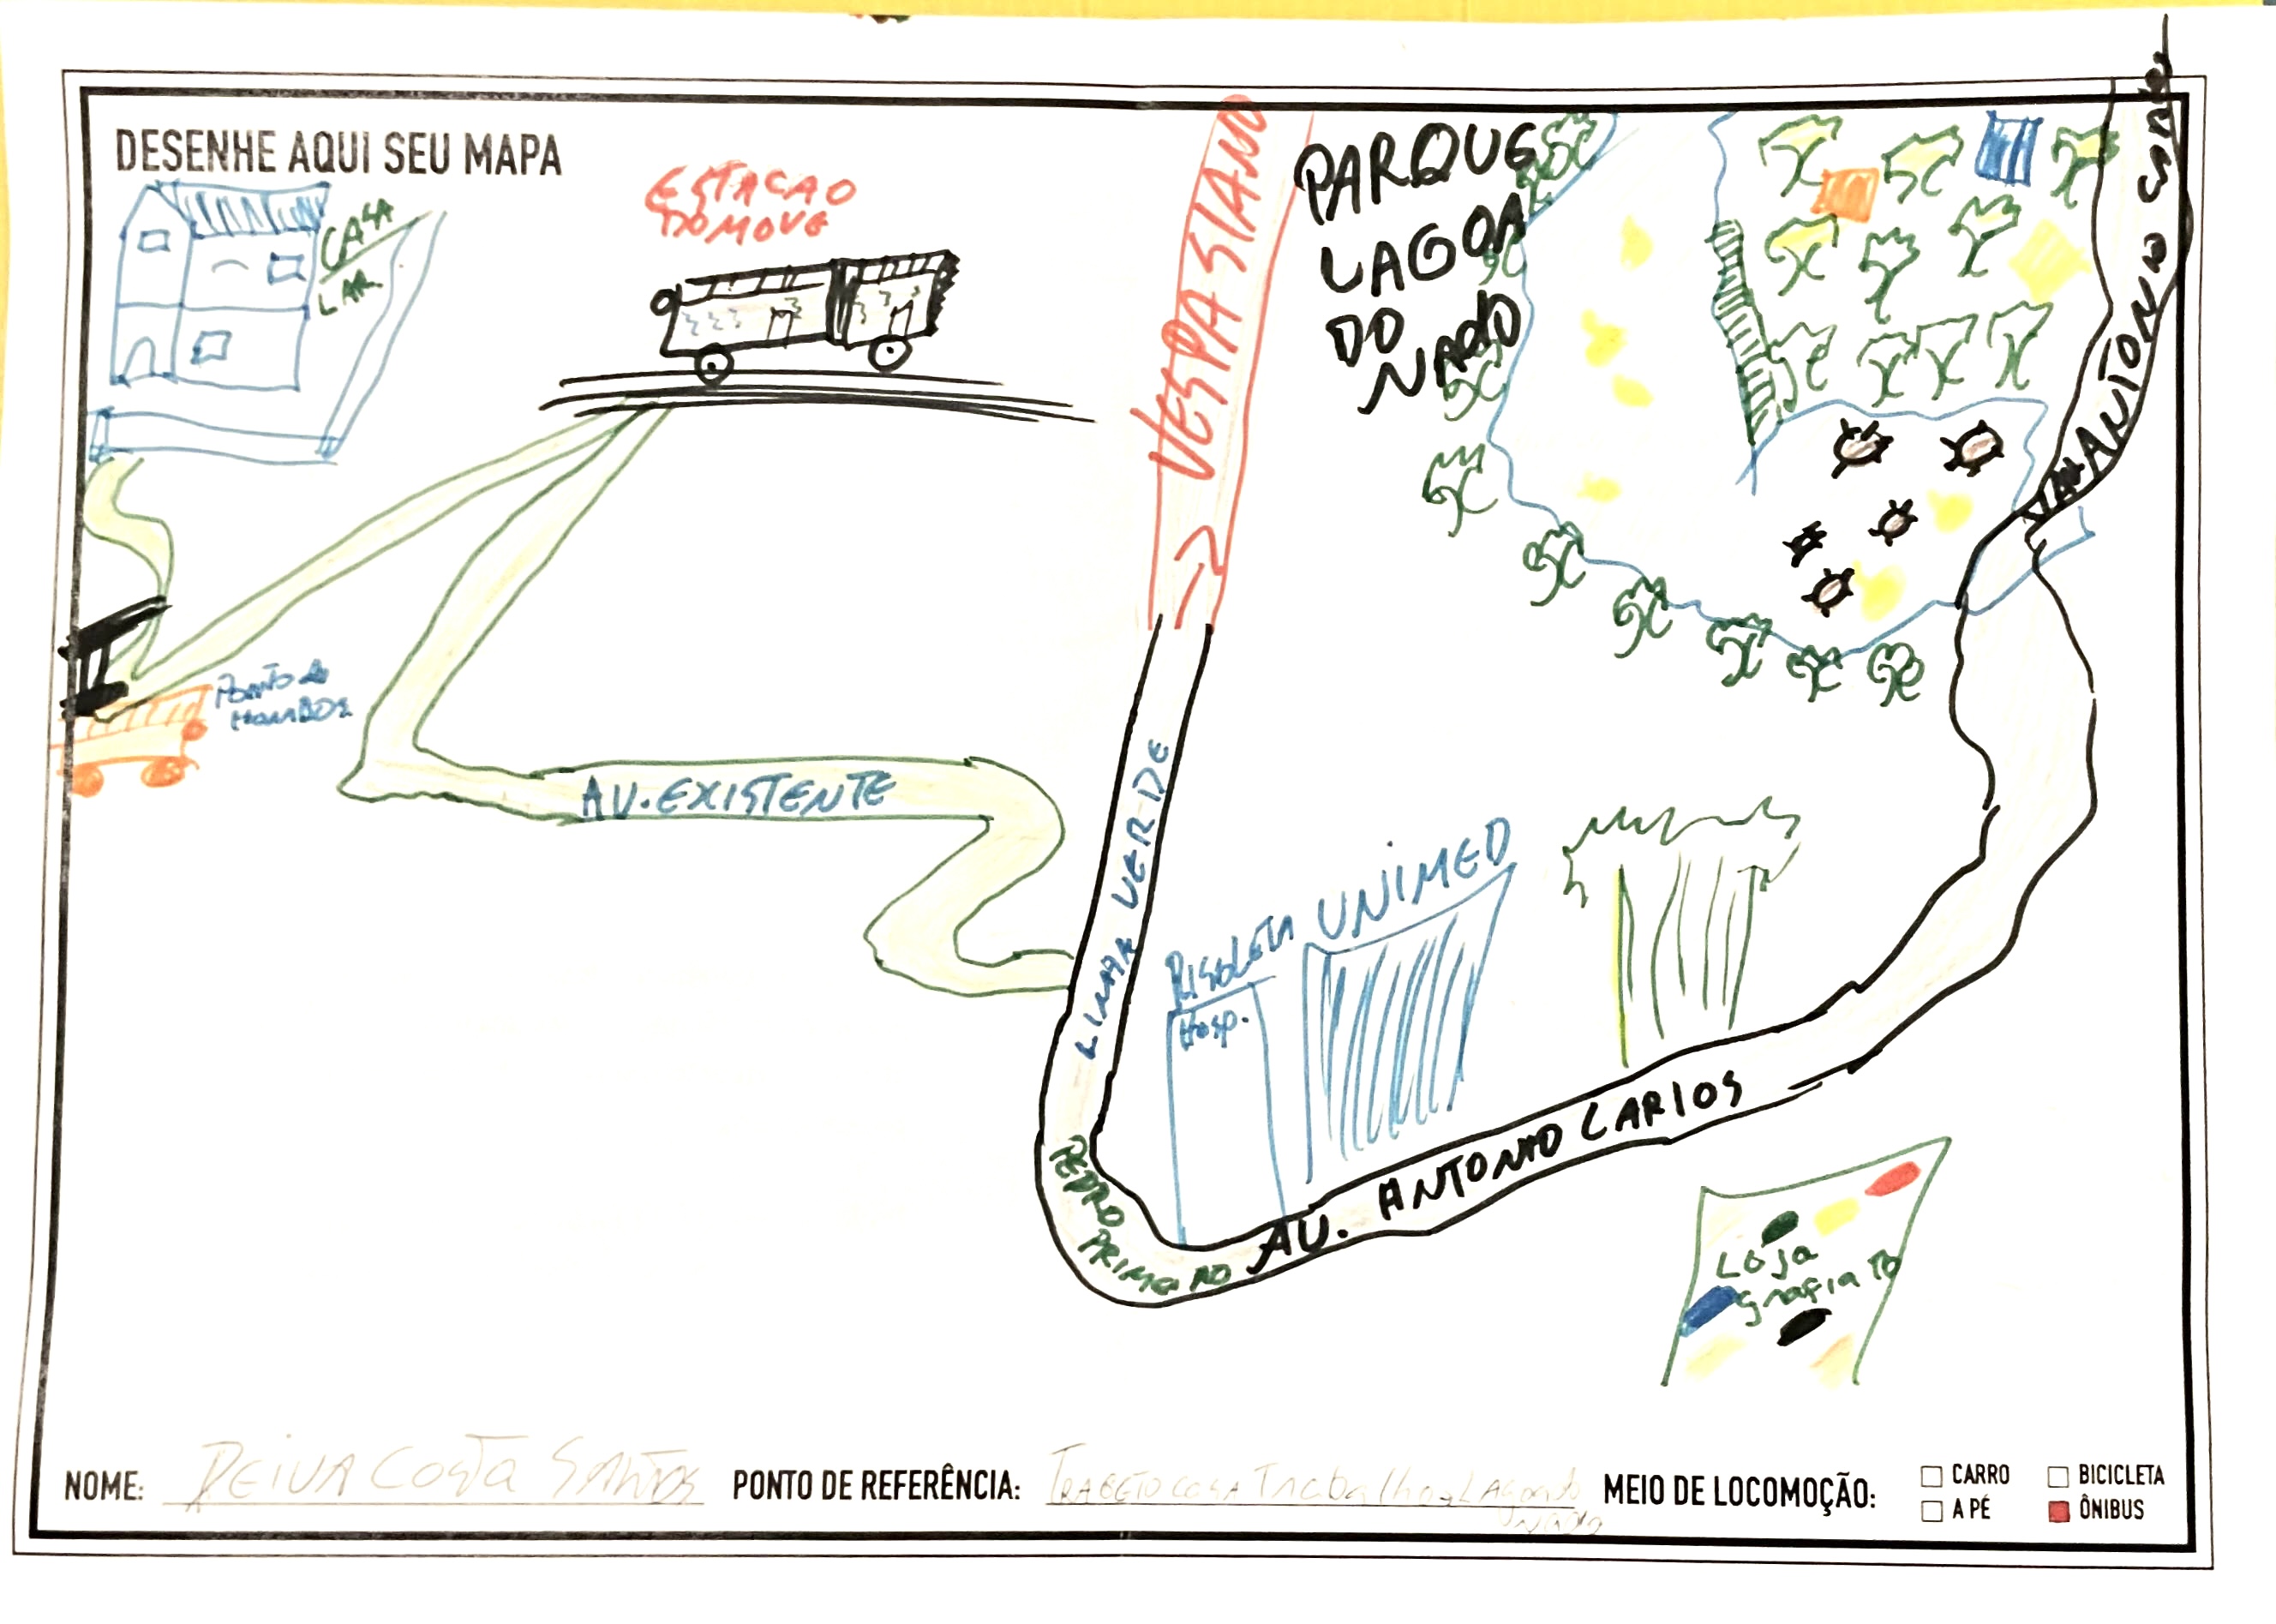 DESENHE AQUI SEU MAPA
CASA
LAR
ESTACAO
DO MOVE
VESPASIANO
PARQUE
LAGOA
DO
NADO
AV. ANTONIO
PONTO DE
AV. EXISTENTE
LINHA VERDE
RISOLETA
Hosp.
UNIMED
PEDRO PRIMEIRO
AV. ANTONIO CARLOS
Loja
grafiato
NOME: DEIVA COSTA SANTOS
PONTO DE REFERÊNCIA: TRAGETO CASA Trabalho Lagoa do
Nado
MEIO DE LOCOMOÇÃO:
CARRO
BICICLETA
A PÉ
ÔNIBUS